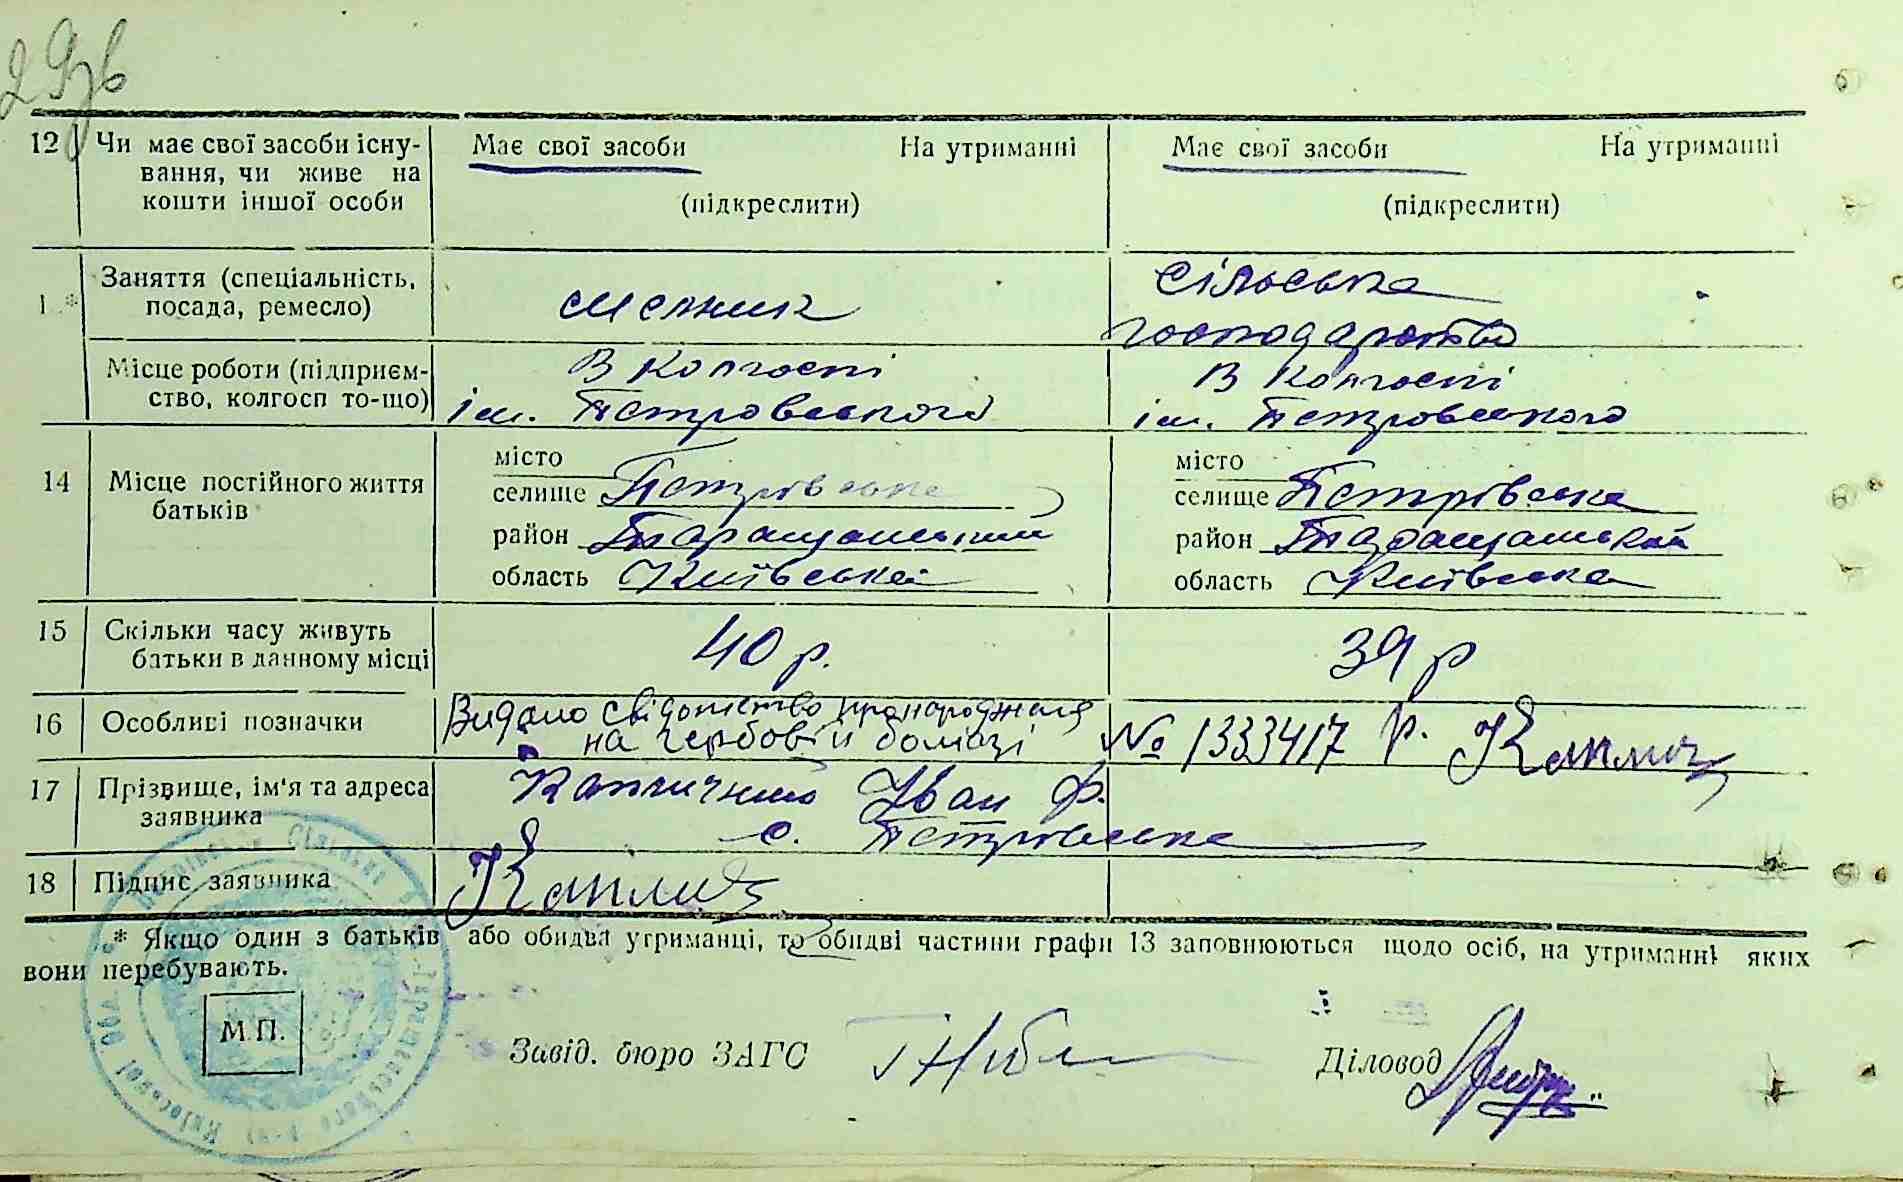 29зв
12 Чи має свої засоби існу-
вання, чи живе на
кошти іншої особи
Має свої засоби На утриманні
(підкреслити)
Має свої засоби На утриманні
(підкреслити)
Заняття (спеціальність,
посада, ремесло)
мельник
сільське
господарство
Місце роботи (підприєм-
ство, колгосп то-що)
В колгоспі
ім. Петровського
В колгоспі
ім. Петровського
14 Місце постійного життя
батьків
місто
селище Петрівська
район Таращанський
область Київська
місто
селище Петрівська
район Таращанський
область Київська
15 Скільки часу живуть
батьки в данному місці
40 р.
39 р
16 Особливі позначки
Видано свідотство про народження
на гербовій бомазі
№ 1333417 р.
17 Прізвище, ім'я та адреса
заявника
Іван Ф.
с. Петрівське
18 Підпис заявника
* Якщо один з батьків або обидва утриманці, то обидві частини графи 13 заповнюються щодо осіб, на утриманні яких
вони перебувають.
М.П.
Завід. бюро ЗАГС
Діловод